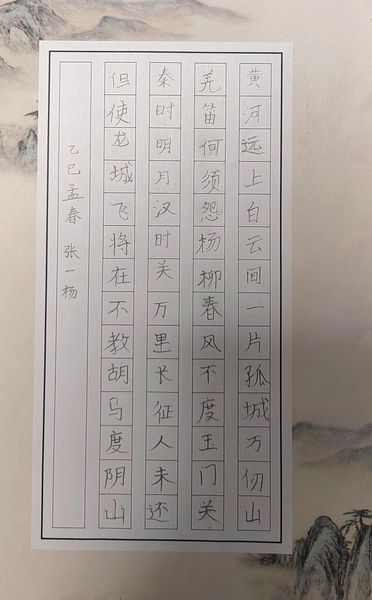 黄河远上白云间一片孤城万仞山
羌笛何须怨杨柳春风不度玉门关
秦时明月汉时关万里长征人未还
但使龙城飞将在不教胡马度阴山
乙巳孟春 张一杨